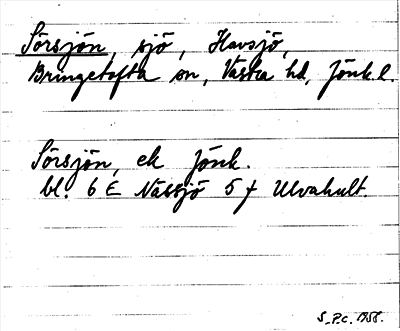 Sörsjön, sjö, Havsjö,
Bringetofta sn, Västra hd, Jönk l.
Sörsjön, ek Jönk.
bl. 6 E Nässjö 5 f Ulvahult.
S_P.c. 1958.